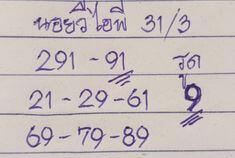 นอยวีไอพี 31/3
291 - 91 รูด
21 - 29 - 61 9
69 - 79 - 89